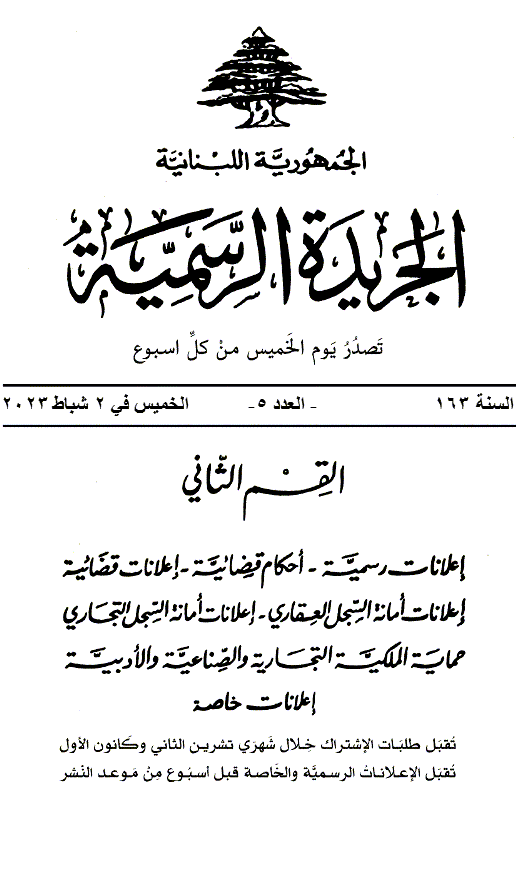 الجُمهُوريَّة اللبْنانيَّة
الجَريدَة الرَّسمِيَّة
تَصدُرُ يَوم الخَميس منْ كلِّ اسبوع
السنة ١٦٣ - العدد ٥- الخميس في ٢ شباط ٢٠٢٣
القِسْم الثّاني
إعلانات رسميَّة - أحكام قضائيَّة - إعلانات قضائية
إعلانات أمانة السِّجل العِقاري - إعلانات أمانة السِّجل التجاري
حماية الملكيَّة التجارية والصِّناعيَّة والأدبيَّة
إعلانات خاصة
تُقبَل طلبَات الإشتراك خِلال شَهرَي تشرين الثاني وكَانون الأول
تُقبَل الإعلاناتُ الرسميَّة والخَاصة قبل أسبُوع مِنْ مَوعد النَشر